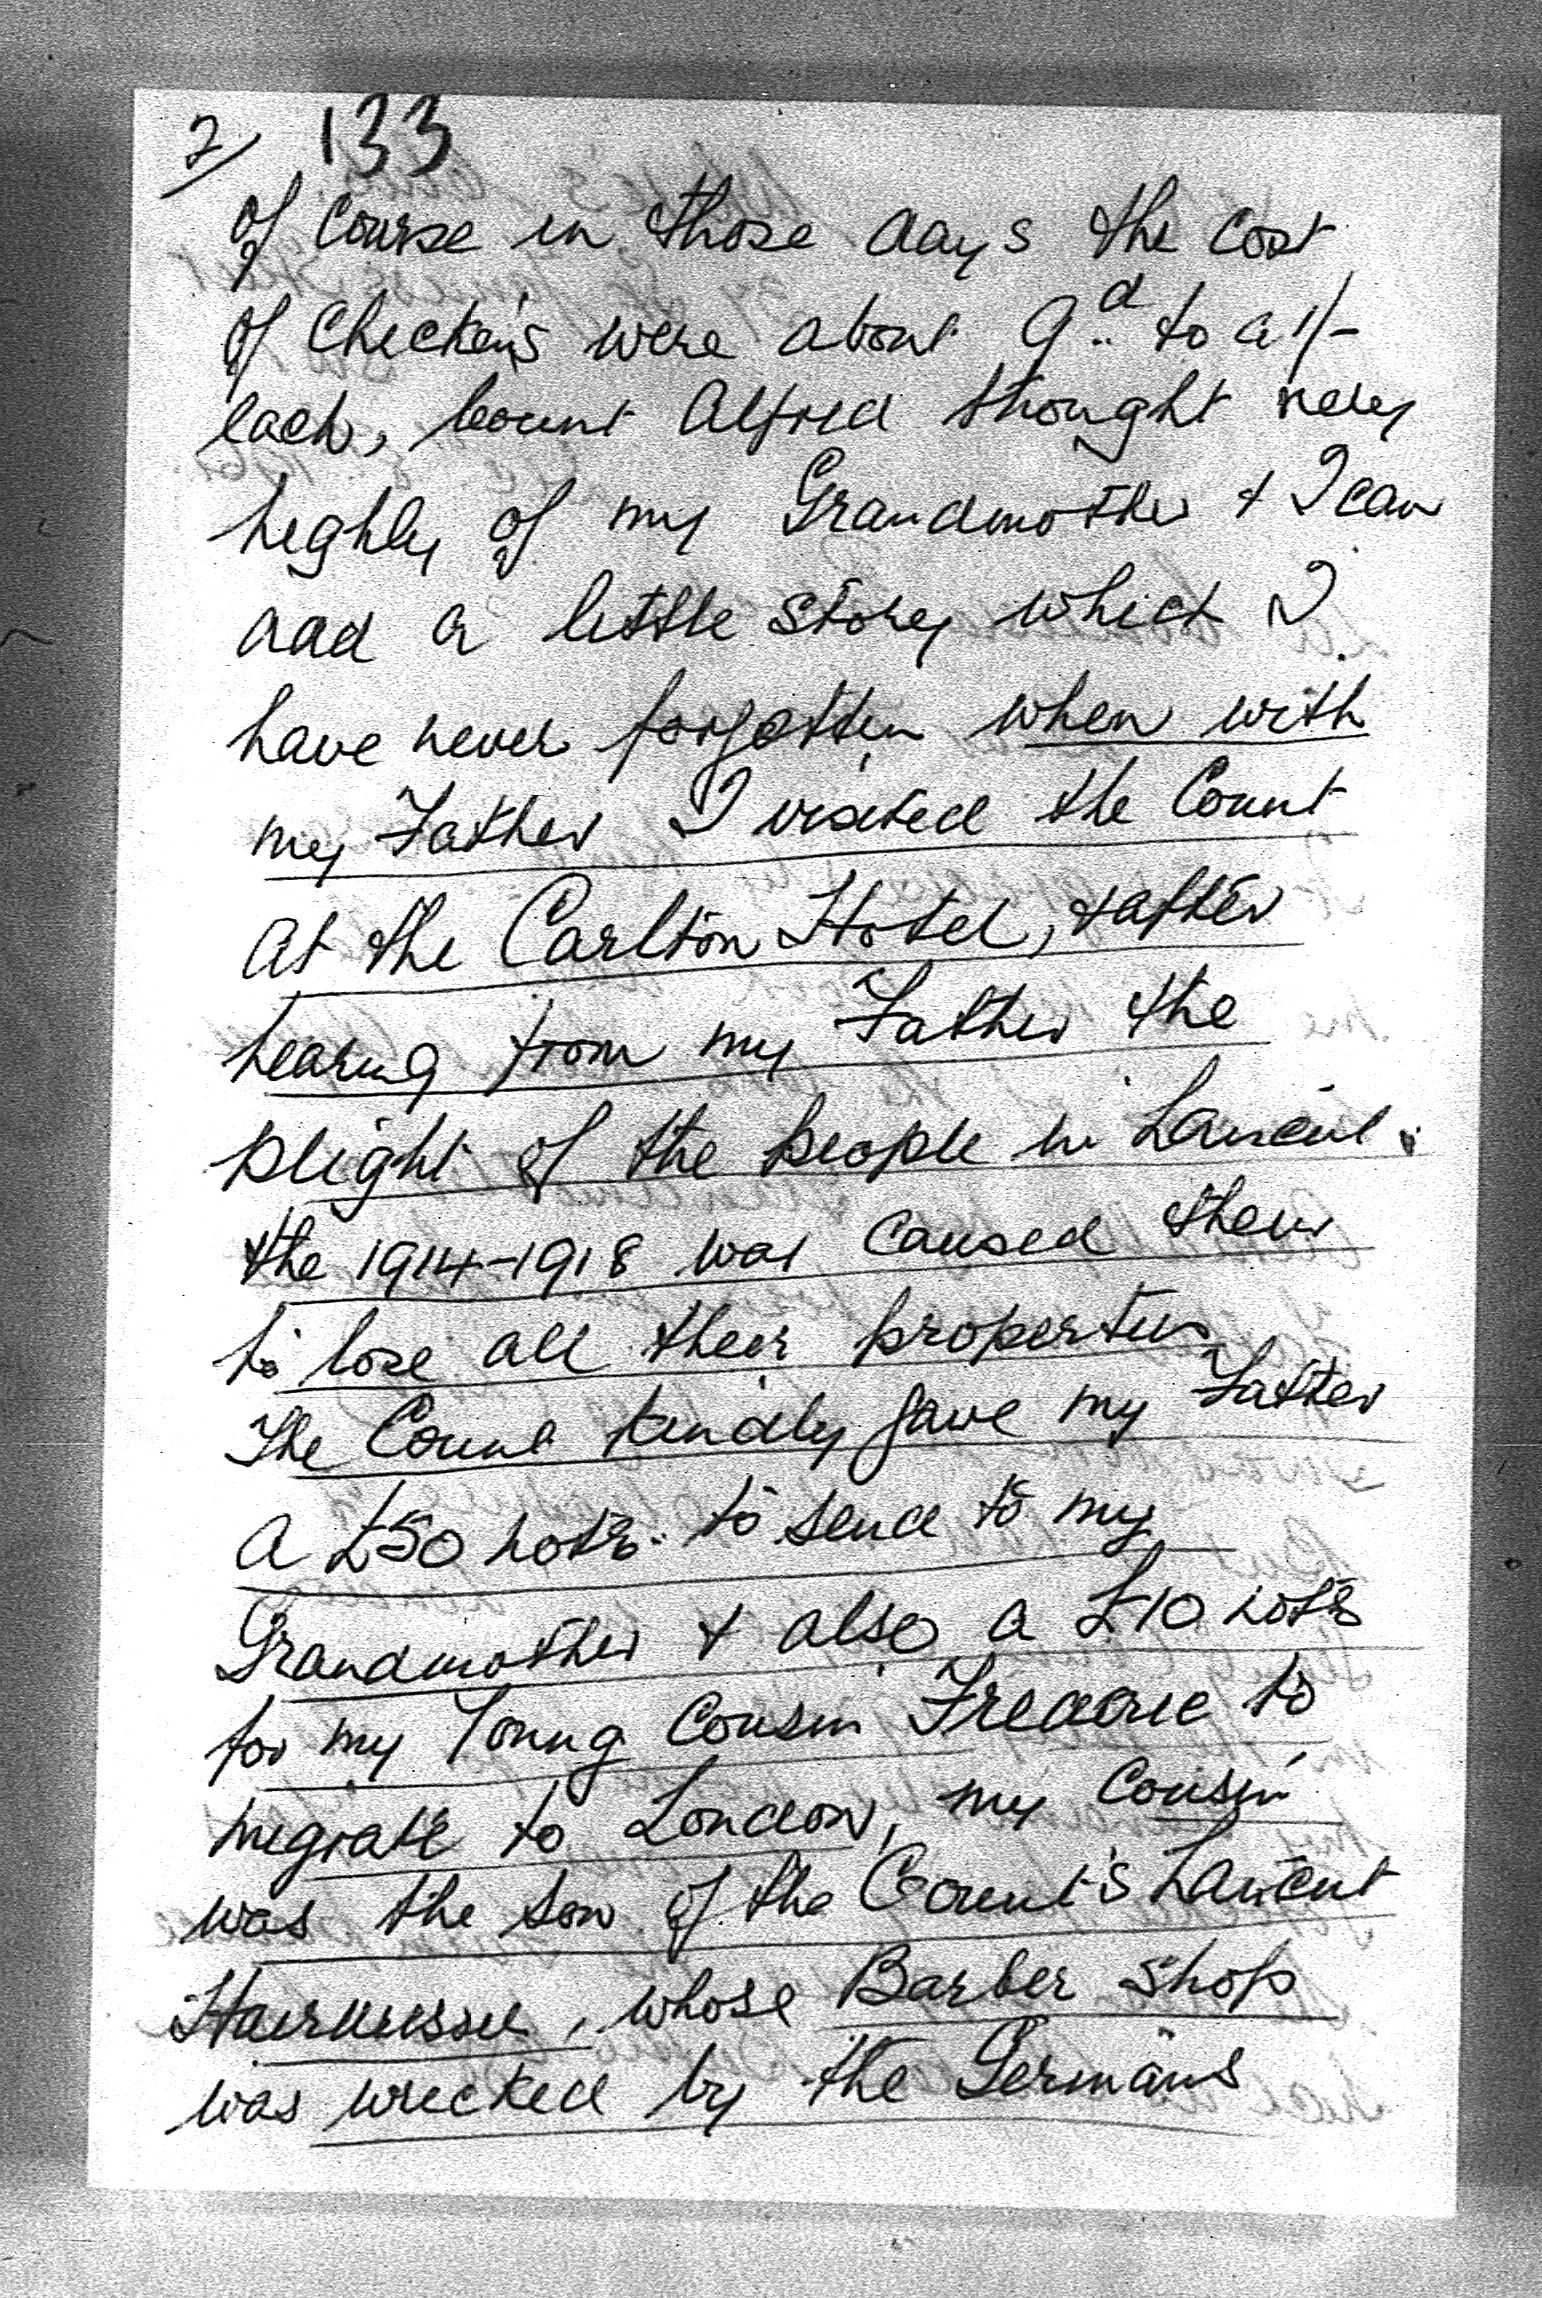 2/ 133
of course in those days the cost
of Checken's were about 9d to a 1/-
each, Count Alfred thought very
highly of my Grandmother & I can
add a little story which I
have never forgotten when with
my Father I visited the Count
at the Carlton Hotel, & after
hearing from my Father the
plight of the people in
the 1914-1918 war caused them
to lose all their properties
The Count kindly gave my Father
a £50 note to send to my
Grandmother & also a £10 note
for my Young Cousin Frederic to
to London, my Cousin
was the son of the Count's
Hairdresser, whose Barber Shop
was wrecked by the Germans